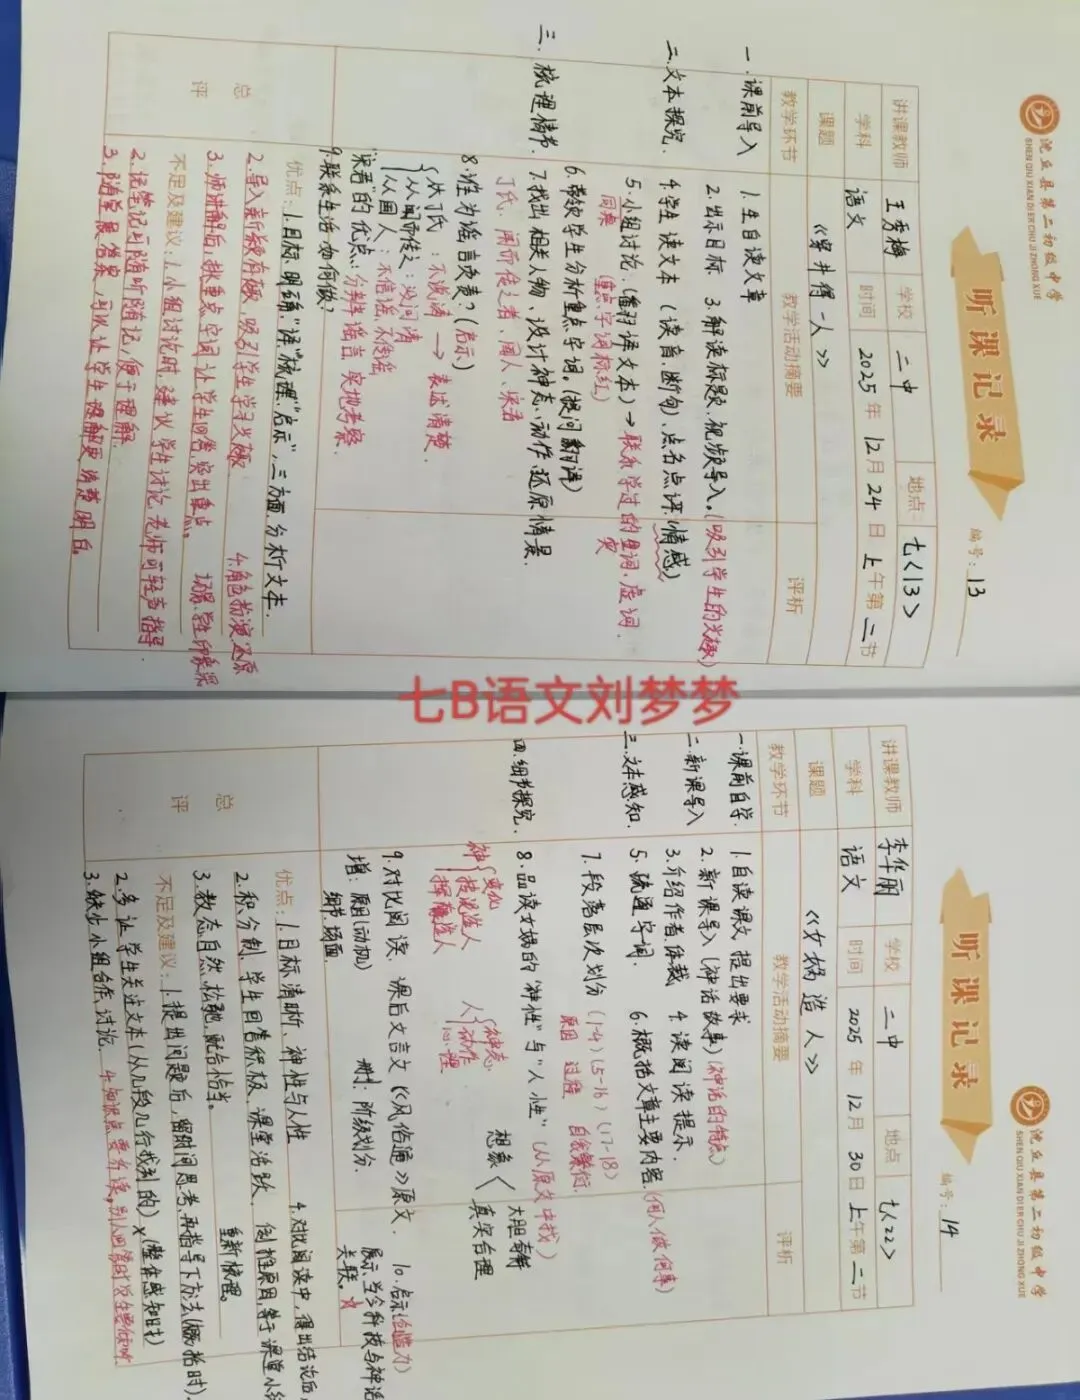 沈丘县第二初级中学
SHEN QIU XIAN DI ER CHU JI ZHONG XUE
听课记录
编号：13
讲课教师 王秀梅 学校 二中 地点 七〈13〉
学科 语文 时间 2025年12月24日上午第二节
课题 《穿井得一人》
教学环节 教学活动摘要 评析
一.课前导入
1.生自读文章
2.出示目标. 3.解读标题,视频导入。(吸引学生的兴趣)
二.文本探究.
4.学生读文本(读音,断句)、点名点评(情感)
5.小组讨论.(翻译文本)→联系学过的实词.虚词.
同桌 (重点字词标红)
6.带领学生分析重点字词。(提问翻译)
三.梳理情节.
7.找出相关人物、设计神态、动作,还原情景.
丁氏、闻而传之者、国人、宋君
8.谁为谣言负责?(启示)
从丁氏:不说清→表述清楚.
从闻而传之:没问清
从国人:不信谣,不传谣
"宋君"的优点:分辨谣言,实地考察.
9.联系生活如何做?
总评
优点:1.目标,明确."译""梳理""启示",三方面,分析文本.
2.导入新颖有趣,吸引学生学习兴趣. 4.角色扮演,还原
3.师讲解后,挑重点字词让学生回答,突出重点. 场景.学生印象深
不足及建议:1.小组讨论时,建议学生讨论,老师可轻声指导
2.记笔记可随听随记,便于理解.
3.随学展答案,可以让学生理解更清楚明白。
七B语文刘梦梦
沈丘县第二初级中学
SHEN QIU XIAN DI ER CHU JI ZHONG XUE
听课记录
编号：14
讲课教师 李华丽 学校 二中 地点 七〈22〉
学科 语文 时间 2025年12月30日上午第二节
课题 《女娲造人》
教学环节 教学活动摘要 评析
一.课前自学.
1.自读课文,提出要求
二.新课导入
2.新课导入(神话故事)(神话的特点)
3.介绍作者.体裁 4.读阅读提示.
三.文本感知.
5.疏通字词. 6.概括文章主要内容(何人做何事)
7.段落层次划分(1-4)(5-16)(17-18)
原因 过程 自我繁衍.
四.细节探究.
8.品读女娲的"神性"与"人性"(从原文中找)
神 变化 技造人 挥鞭造人
人 神态 动作 心理
想象〈大胆奇特 真实合理
9.对比阅读. 课后文言文《风俗通》原文. 10.启示(创造力)
增:原因(动机) 删:阶级划分. 展示:当今科技与神话
细节.场面. 关联.☆
总评
优点:1.目标清晰,神性与人性 4.对比阅读中,得出结论后,
2.积分制,学生回答积极,课堂活跃.
3.教态自然,松驰,配合恰当。 重新梳理。
不足及建议:1.提出问题后,留时间思考,再指导下方法(概括时).
2.多让学生关注文本(从几段几行找到的)
3.缺少小组合作,讨论.